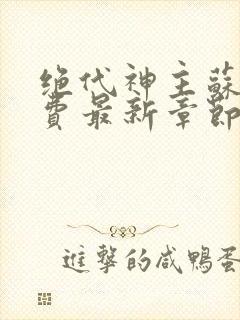 绝代神主蘇
費最新章節
進撃的咸鴨蛋